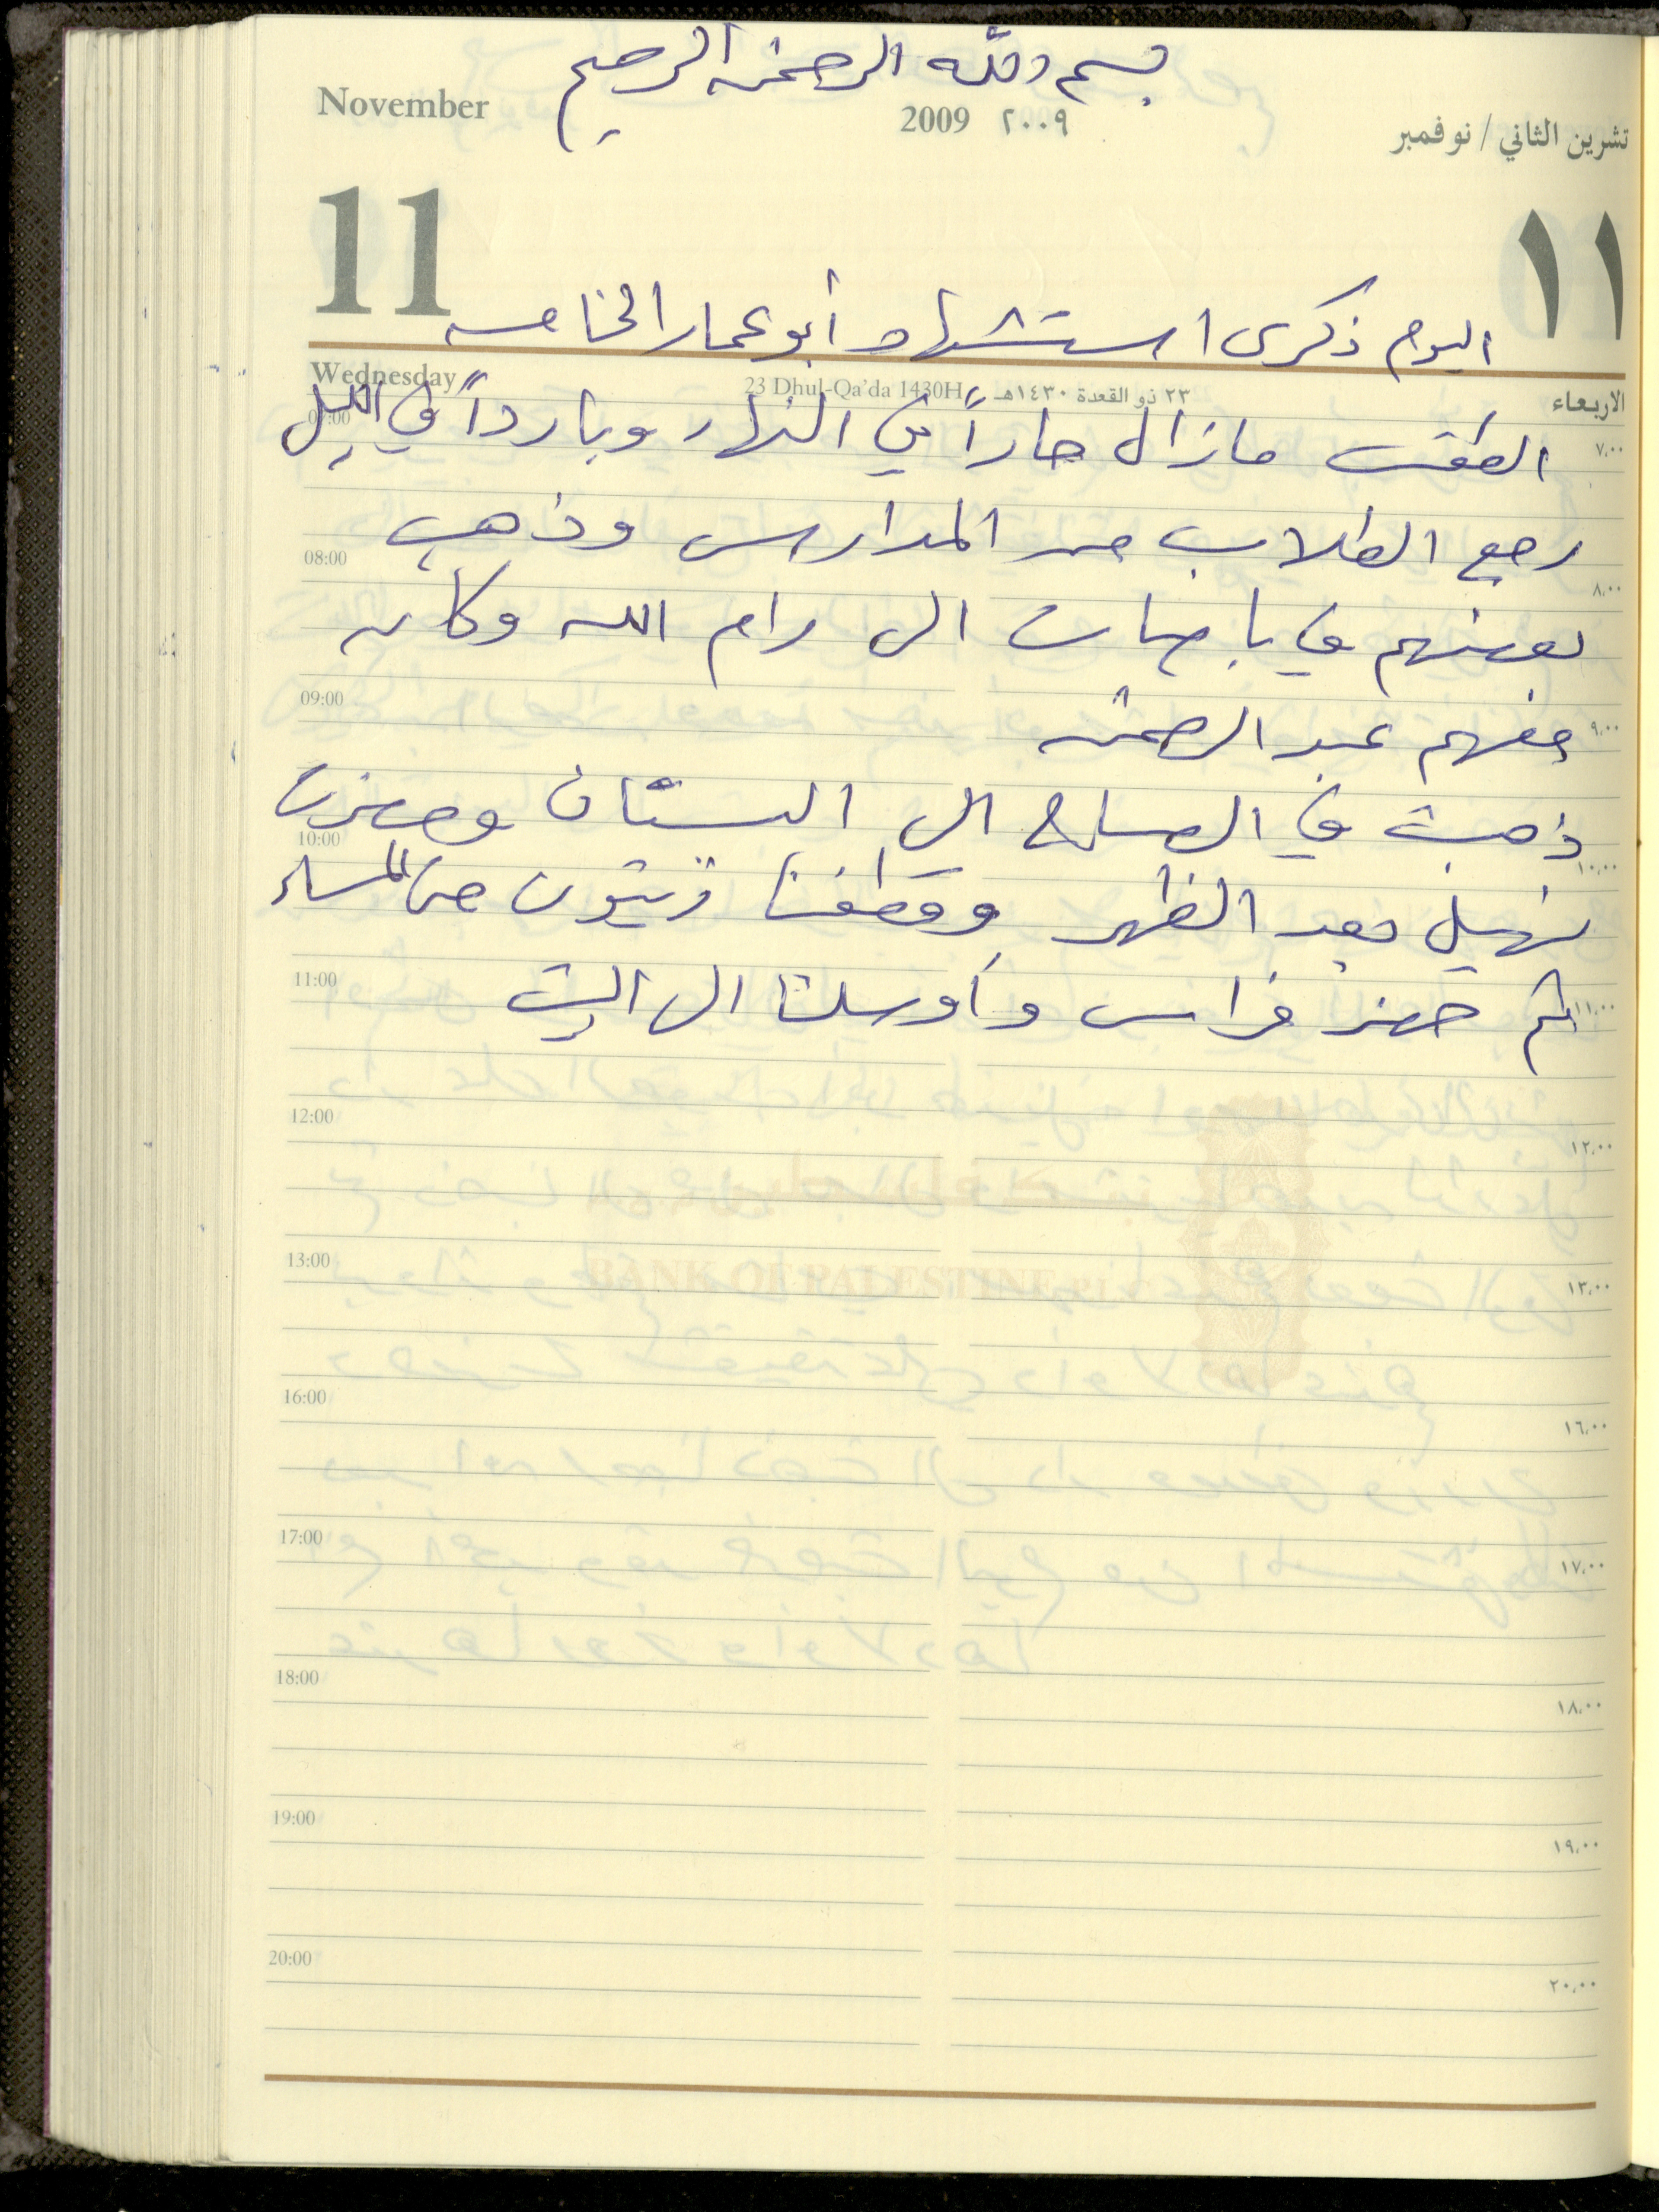 بسم الله الرحمن الرحيم
November 2009 ٢٠٠٩ تشرين الثاني / نوفمبر
11 ١١
اليوم ذكرى استشهاد أبو عمار الخامسة
Wednesday 23 Dhul-Qa'da 1430H ٢٣ ذو القعدة ١٤٣٠هـ الاربعاء
07:00 ٧،٠٠
الطقس مازال حاراً في النهار وبارداً في الليل
رجع الطلاب من المدارس وذهب
08:00 ٨،٠٠
بعضهم في باصات الى رام الله وكان
09:00 ٩،٠٠
منهم عبد الرحمن
ذهبت في الصباح الى البستان وحضرت
10:00 ١٠،٠٠
نهيل بعد الظهر وقطفنا زيتون حتى المساء
11:00 ١١،٠٠
ثم حضر فراس وأوصلنا الى البيت
12:00 ١٢،٠٠
BANK OF PALESTINE P.L.C
13:00 ١٣،٠٠
16:00 ١٦،٠٠
17:00 ١٧،٠٠
18:00 ١٨،٠٠
19:00 ١٩،٠٠
20:00 ٢٠،٠٠